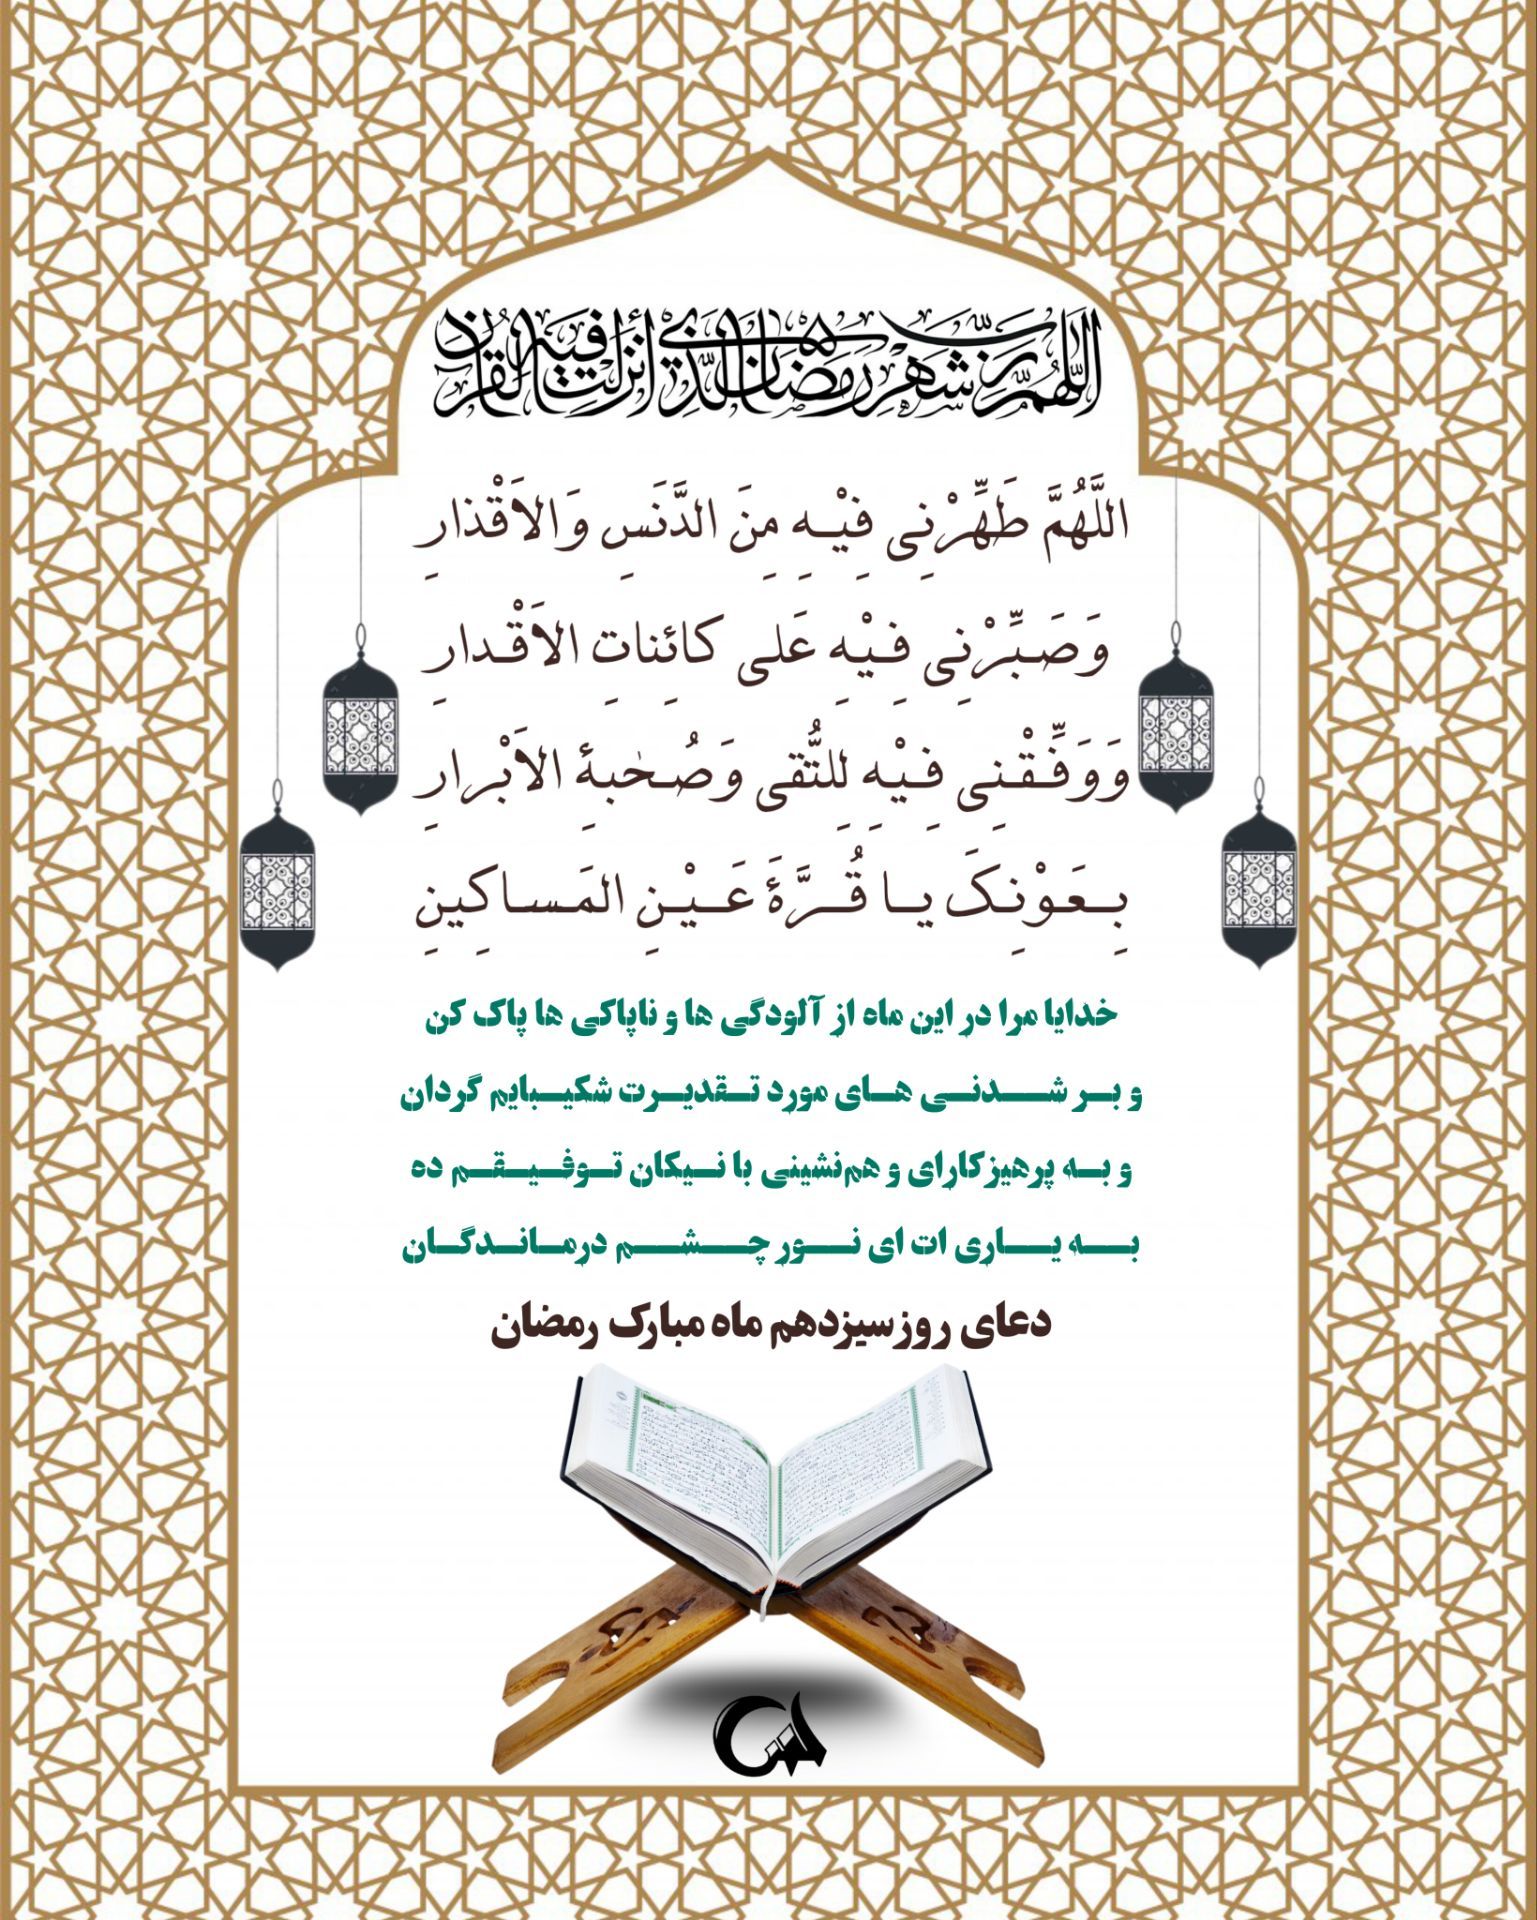 اللهم رب شهر رمضان الذي أنزلت فيه القرآن
اللَّهُمَّ طَهِّرْنِی فِیْـهِ مِنَ الدَّنَسِ وَالاَقْذارِ
وَصَبِّرْنِی فِیْهِ عَلی کائِناتِ الاَقْدارِ
وَوَفِّقْنِی فِیْهِ لِلتُّقی وَصُحْبةِ الاَبْرارِ
بِعَوْنِکَ یـا قُـرَّةَ عَـیْنِ المَساکِینِ
خدایا مرا در این ماه از آلودگی ها و ناپاکی ها پاک کن
و بـر شـدنـی هـای مورد تـقدیـرت شکیـبایم گردان
و بـه پرهیزکارای و هم‌نشینی با نـیکان تـوفـیـقـم ده
بـه یـاری ات ای نـور چـشـم درمـانـدگـان
دعای روز سیزدهم ماه مبارک رمضان